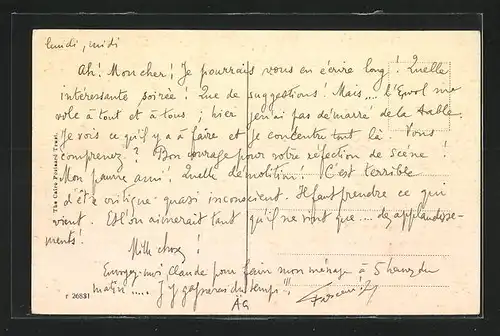 lundi, midi
Ah! Mon cher! Je pourrais vous en écrire long! Quelle
intéressante soirée! Que de suggestions! Mais... l'Evol me
vole à tout et à tous; hier je n'ai pas démarré de la table.
Je vois ce qu'il y a à faire et je concentre tout là. Vous
comprenez? Bon courage pour votre réfection de scène!
Mon pauvre ami! Quelle démolition! C'est terrible
d'être critique quasi inconscient. Il faut prendre ce qui
vient. Et l'on aimerait tant qu'il ne vint que.... des applaudisse-
ments!
Mille choses!
Envoyez-moi Claude pour faire mon ménage à 5h du
matin..... J'y gagnerais du temps!!!
The Cairo Postcard Trust,
26831
AG